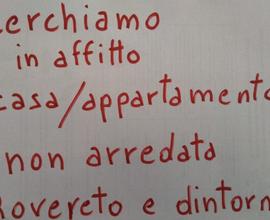 Cerchiamo
in affitto
casa/appartamento
non arredata
Rovereto e dintorn